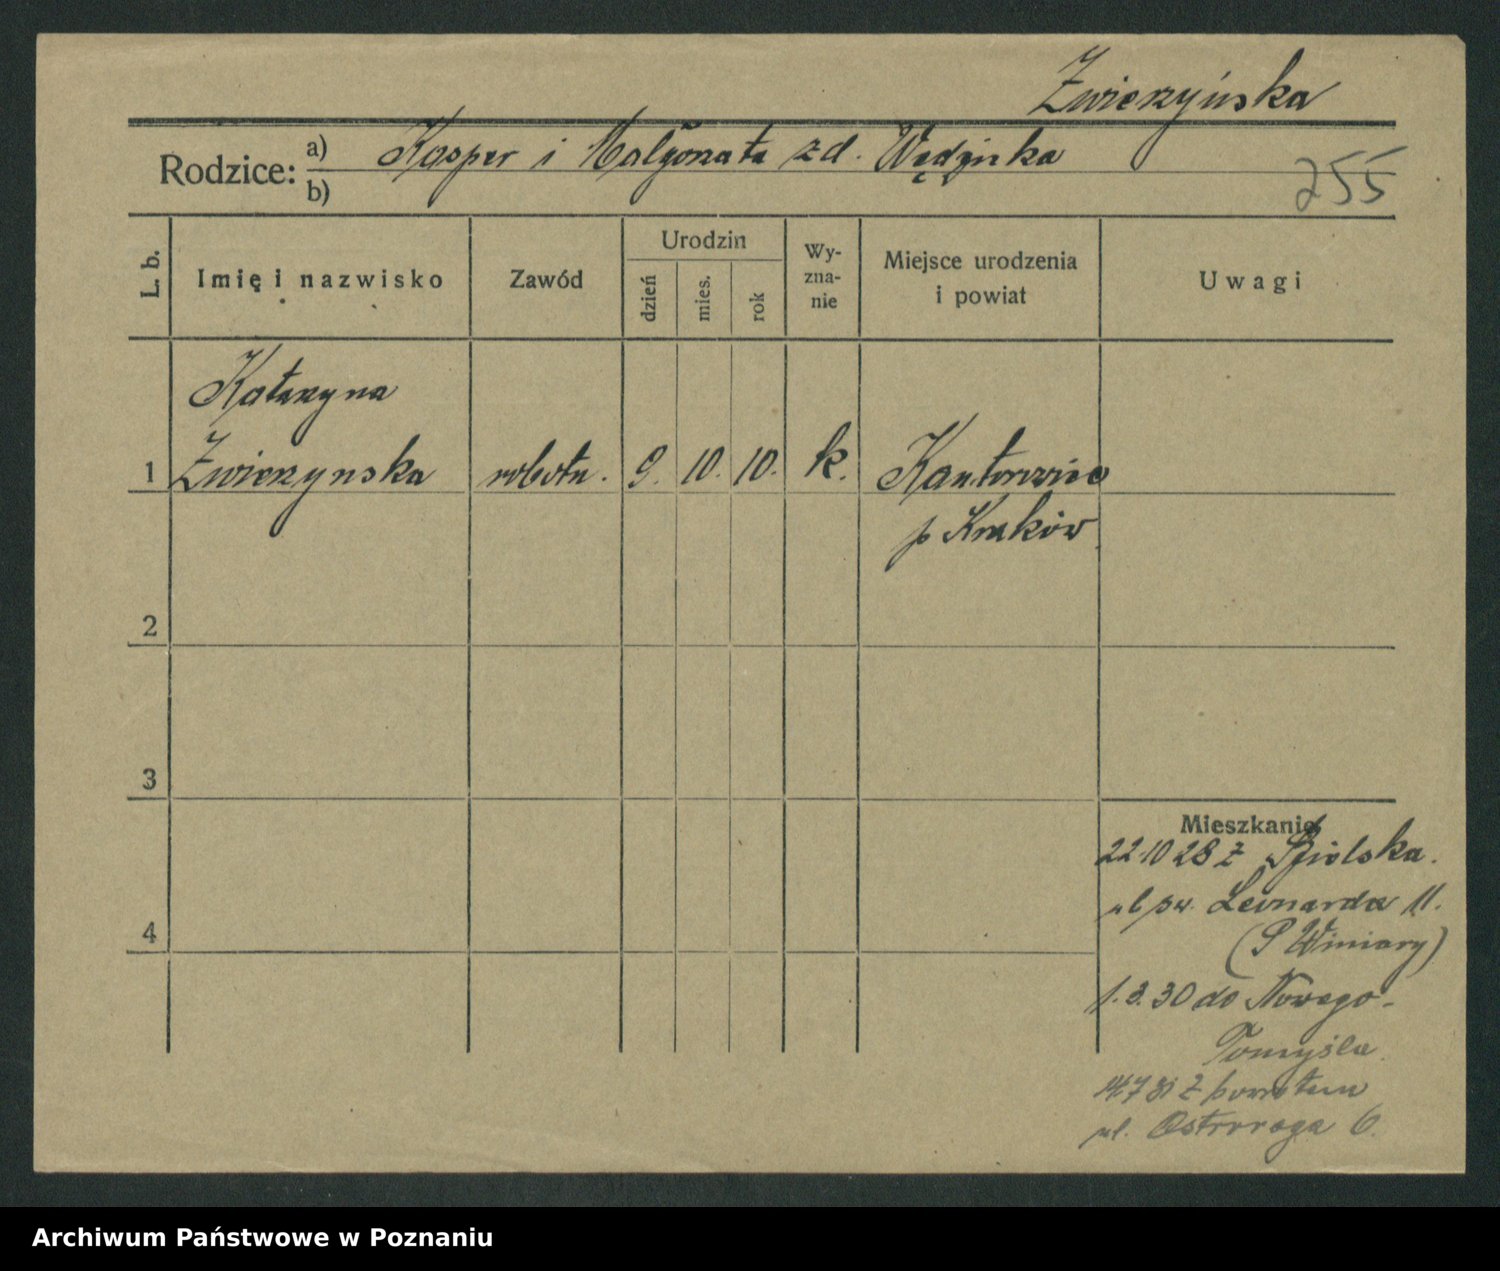 Zwierzyńska
Rodzice: a) Kasper i Małgorzata z d.
b)
255
L. b.
Imię i nazwisko
Zawód
Urodzin
dzień
mies.
rok
Wy-
zna-
nie
Miejsce urodzenia
i powiat
Uwagi
Katarzyna
1 Zwierzynska robotn. 9. 10. 10. k. Kantorowice
p Kraków
2
3
4
Mieszkanie
22.10 28 z
ul św. Leonarda 11.
(P Winiary)
1.3.30 do Nowego-
Tomyśla
14 7 31 z powrotem
ul. Ostroroga 6.
Archiwum Państwowe w Poznaniu